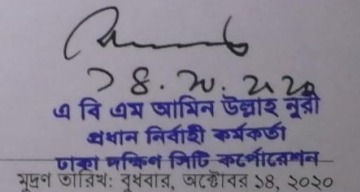 ১৪.১০.২০২০
এ বি এম আমিন উল্লাহ নূরী
প্রধান নির্বাহী কর্মকর্তা
ঢাকা দক্ষিণ সিটি কর্পোরেশন
মুদ্রণ তারিখ: বুধবার, অক্টোবর ১৪, ২০২০